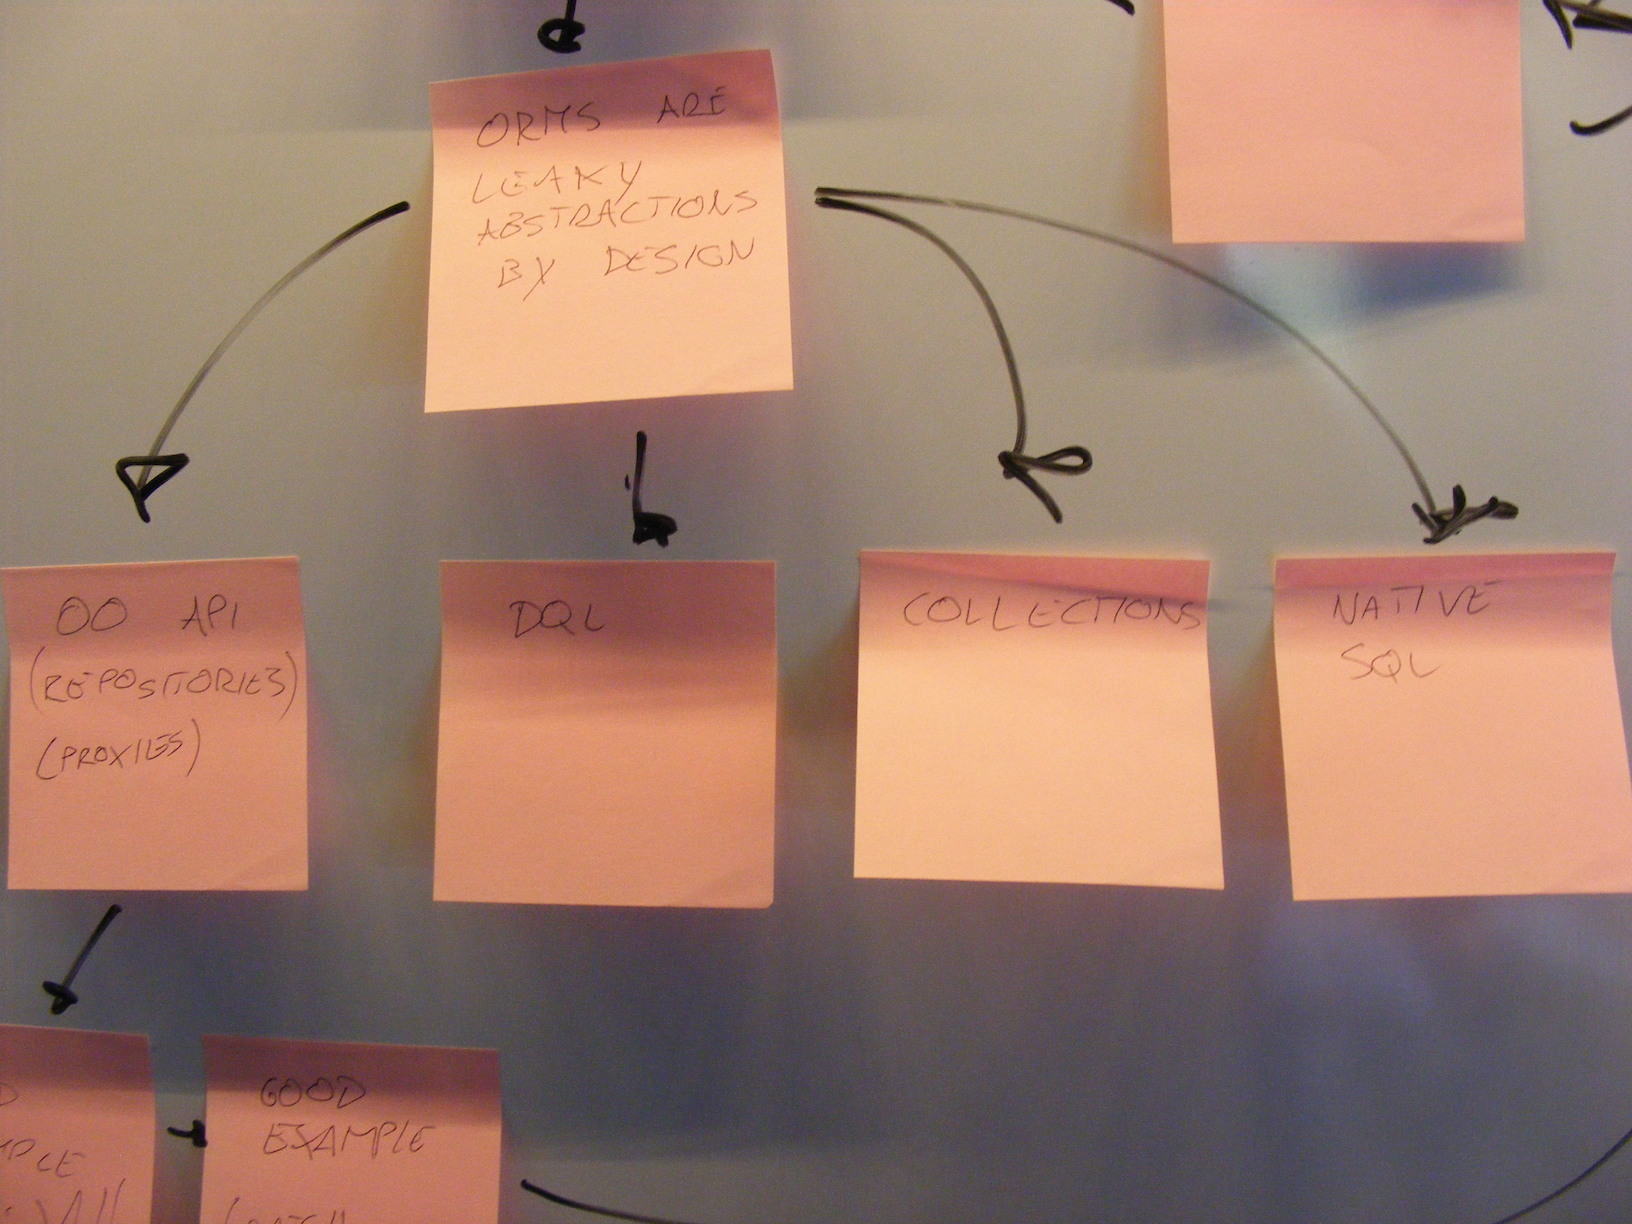 ORMS ARE
LEAKY
ABSTRACTIONS
BY DESIGN
OO API
(REPOSITORIES)
(PROXIES)
DQL
COLLECTIONS
NATIVE
SQL
GOOD
EXAMPLE